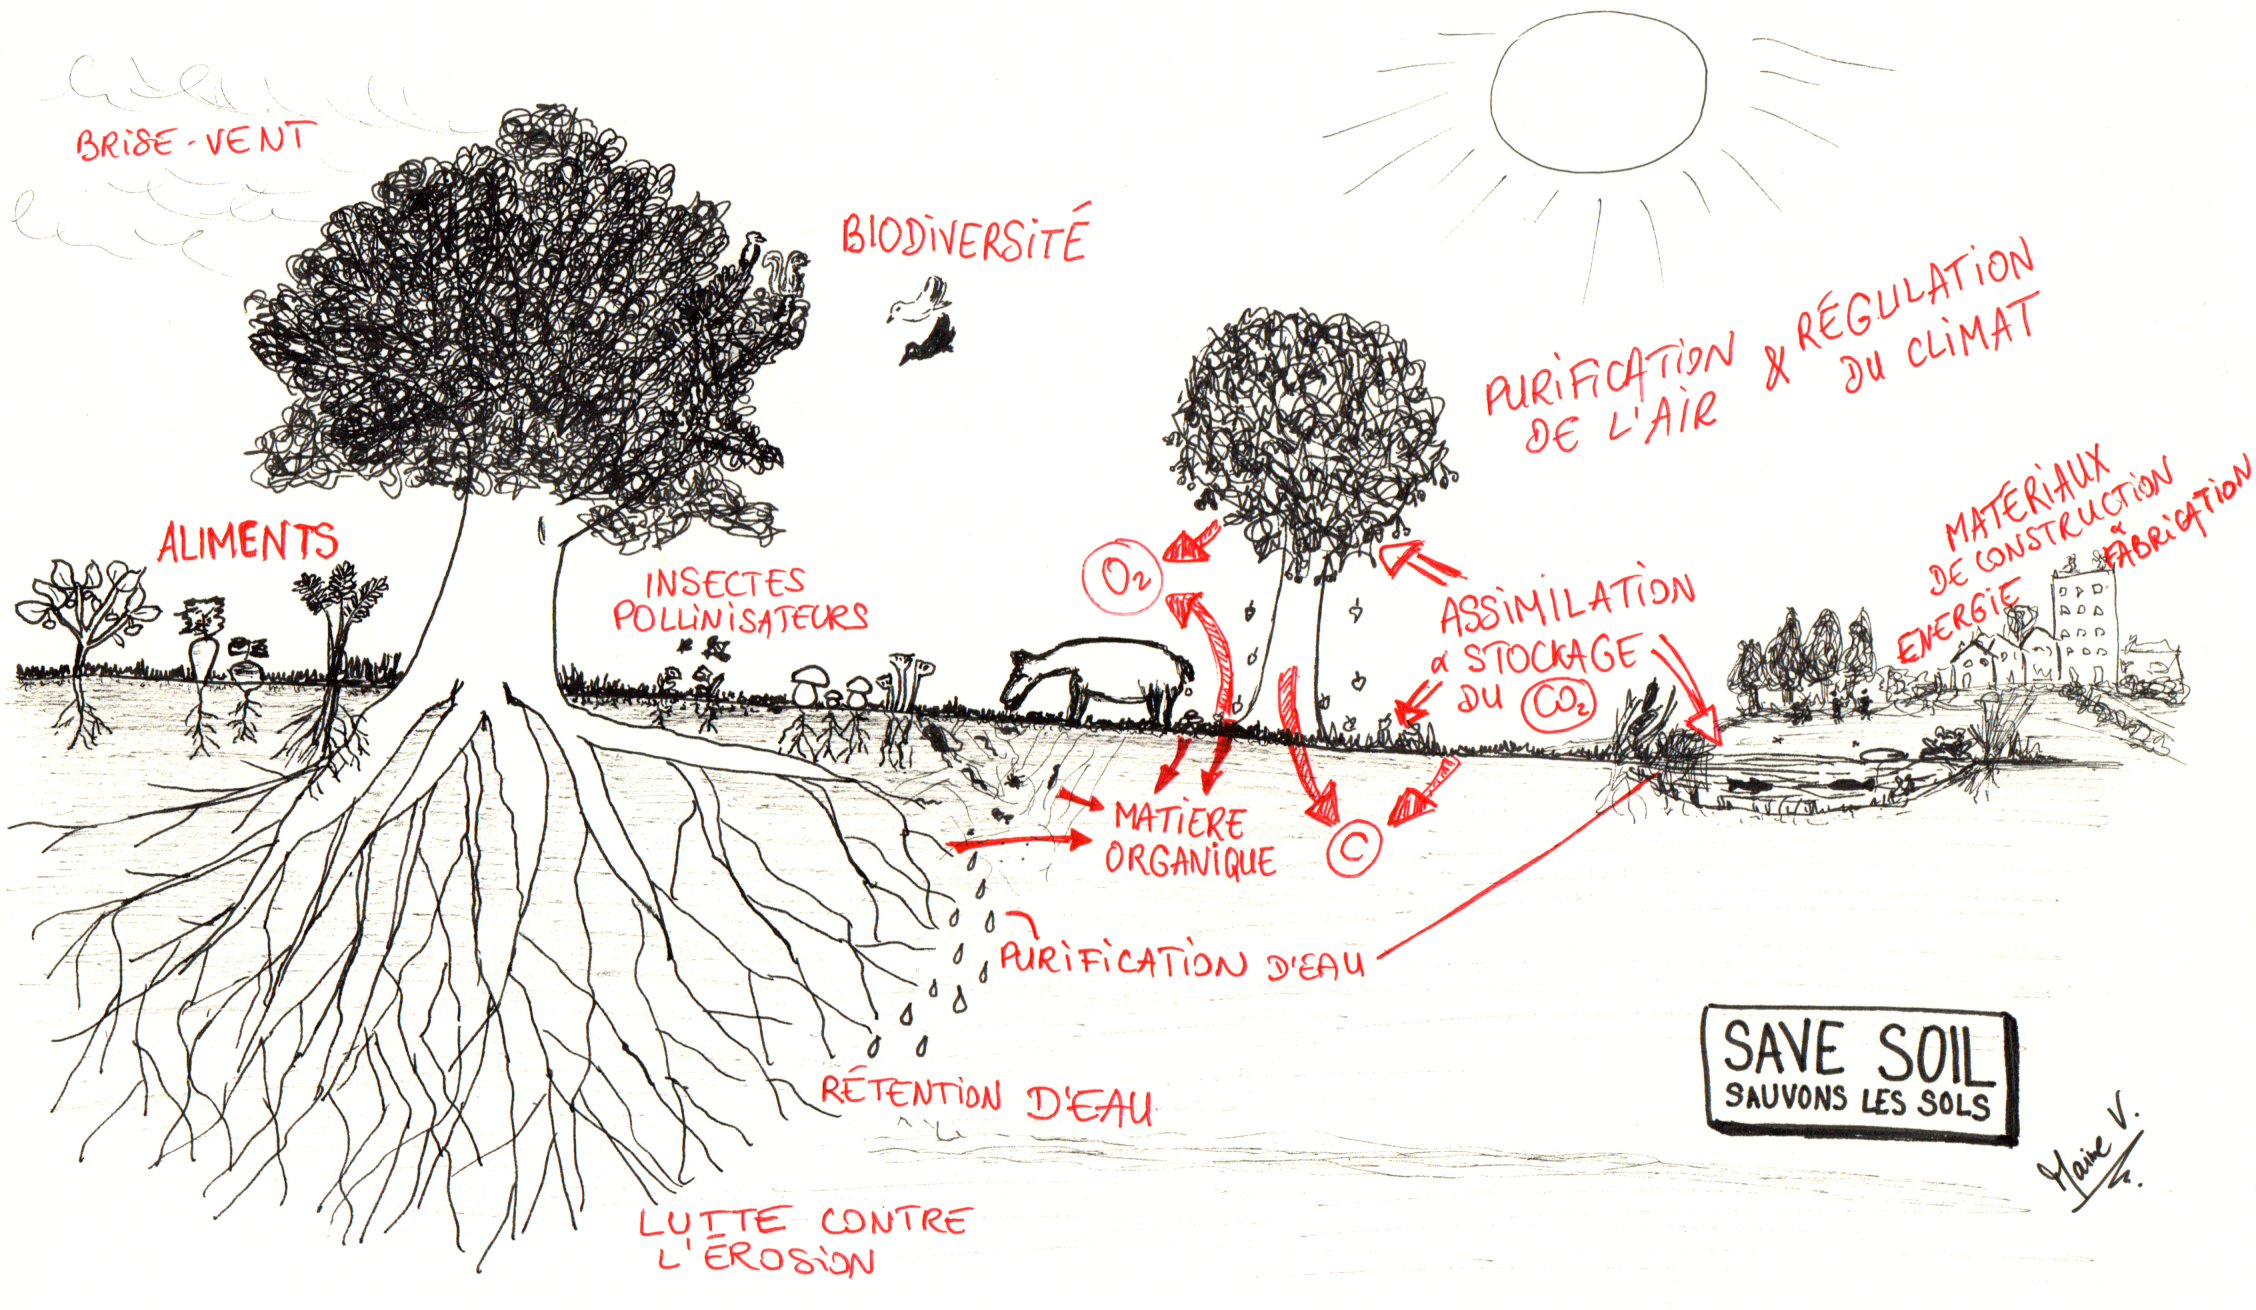 BRISE-VENT
BIODIVERSITÉ
PURIFICATION
DE L'AIR
&
RÉGULATION
DU CLIMAT
MATERIAUX
DE CONSTRUCTION
&
FABRICATION
ENERGIE
ALIMENTS
INSECTES
POLLINISATEURS
O₂
ASSIMILATION
& STOCKAGE
DU CO₂
MATIÈRE
ORGANIQUE
C
PURIFICATION D'EAU
RÉTENTION D'EAU
LUTTE CONTRE
L'ÉROSION
SAVE SOIL
SAUVONS LES SOLS